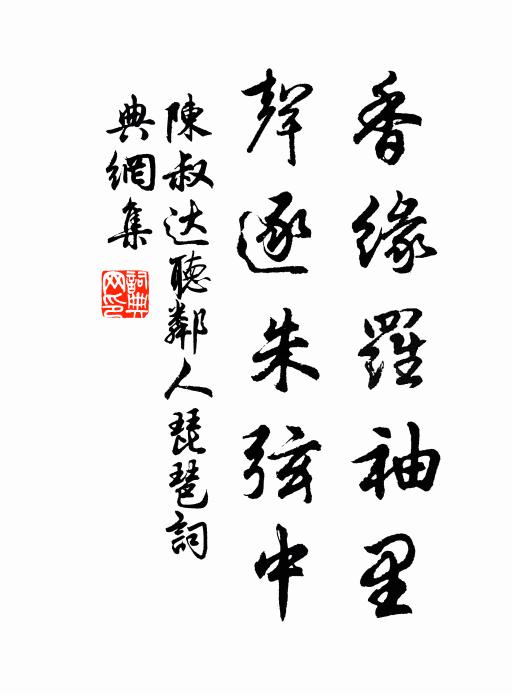 香缘羅袖里
聲逐朱弦中
陳叔达聽鄰人琵琶詞
典網集
詞典网印